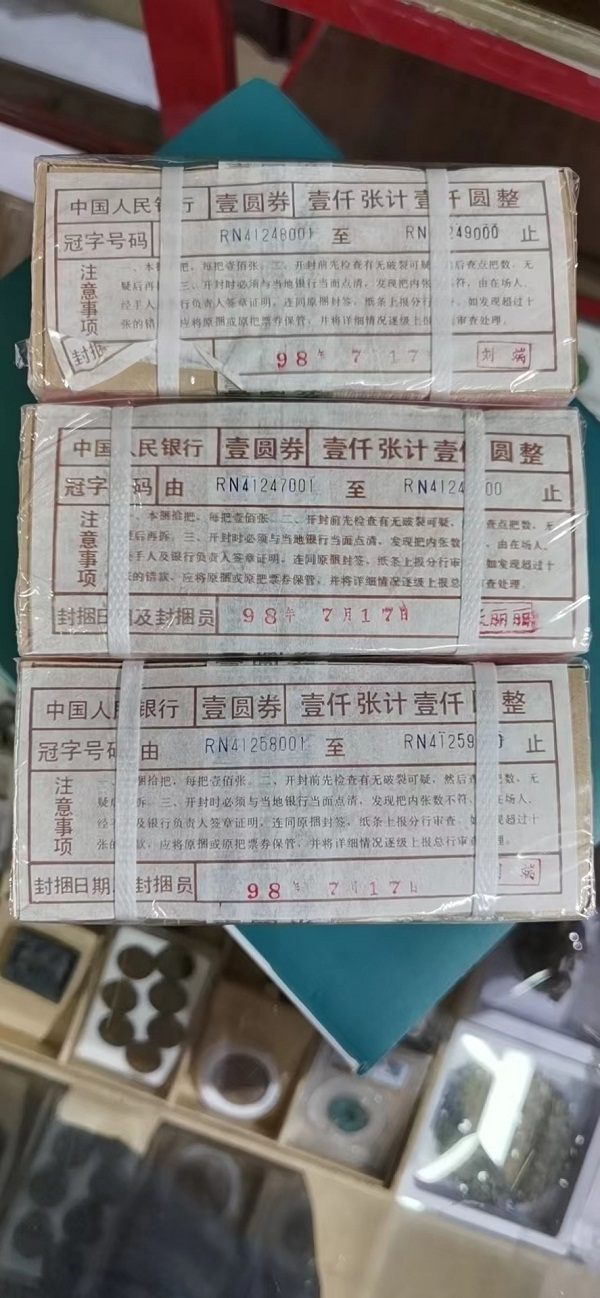 中国人民银行 壹圆券 壹仟张计壹仟圆整
冠字号码 RN41248001 至 RN 249000 止
注意事项
一、本捆拾把,每把壹佰张。二、开封前先检查有无破裂可疑,然后查点把数,无
疑后再拆。三、开封时必须与当地银行当面点清,发现把内张 符,由在场人、
经手人 行负责人签章证明,连同原捆封签,纸条上报分行 ,如发现超过十
张的错 应将原捆或原把票券保管,并将详细情况逐级上报 审查处理。
封捆
98年 7 17
刘 端
中国人民银行 壹圆券 壹仟张计壹仟圆整
冠字 码 由 RN41247001 至 RN4124 00 止
注意事项
一、本捆拾把,每把壹佰张。二、开封前先检查有无破裂可疑, 查点把数,无
疑后再拆。三、开封时必须与当地银行当面点清,发现把内张数 ,由在场人、
经手人及银行负责人签章证明,连同原捆封签,纸条上报分行审 如发现超过十
张的错款,应将原捆或原把票券保管,并将详细情况逐级上报总 审查处理。
封捆日 及封捆员 98年 7月17日
丽丽
中国人民银行 壹圆券 壹仟张计壹仟圆整
冠字号码 由 RN41258001 至 RN41259 止
注意事项
一、 捆拾把,每把壹佰张。二、开封前先检查有无破裂可疑,然后 把数,无
疑后 拆。三、开封时必须与当地银行当面点清,发现把内张数不符, 在场人、
经 及银行负责人签章证明,连同原捆封签,纸条上报分行审查, 发现超过十
张的 款,应将原捆或原把票券保管,并将详细情况逐级上报总行审查 理。
封捆日期 封捆员 98年 7月17日
端